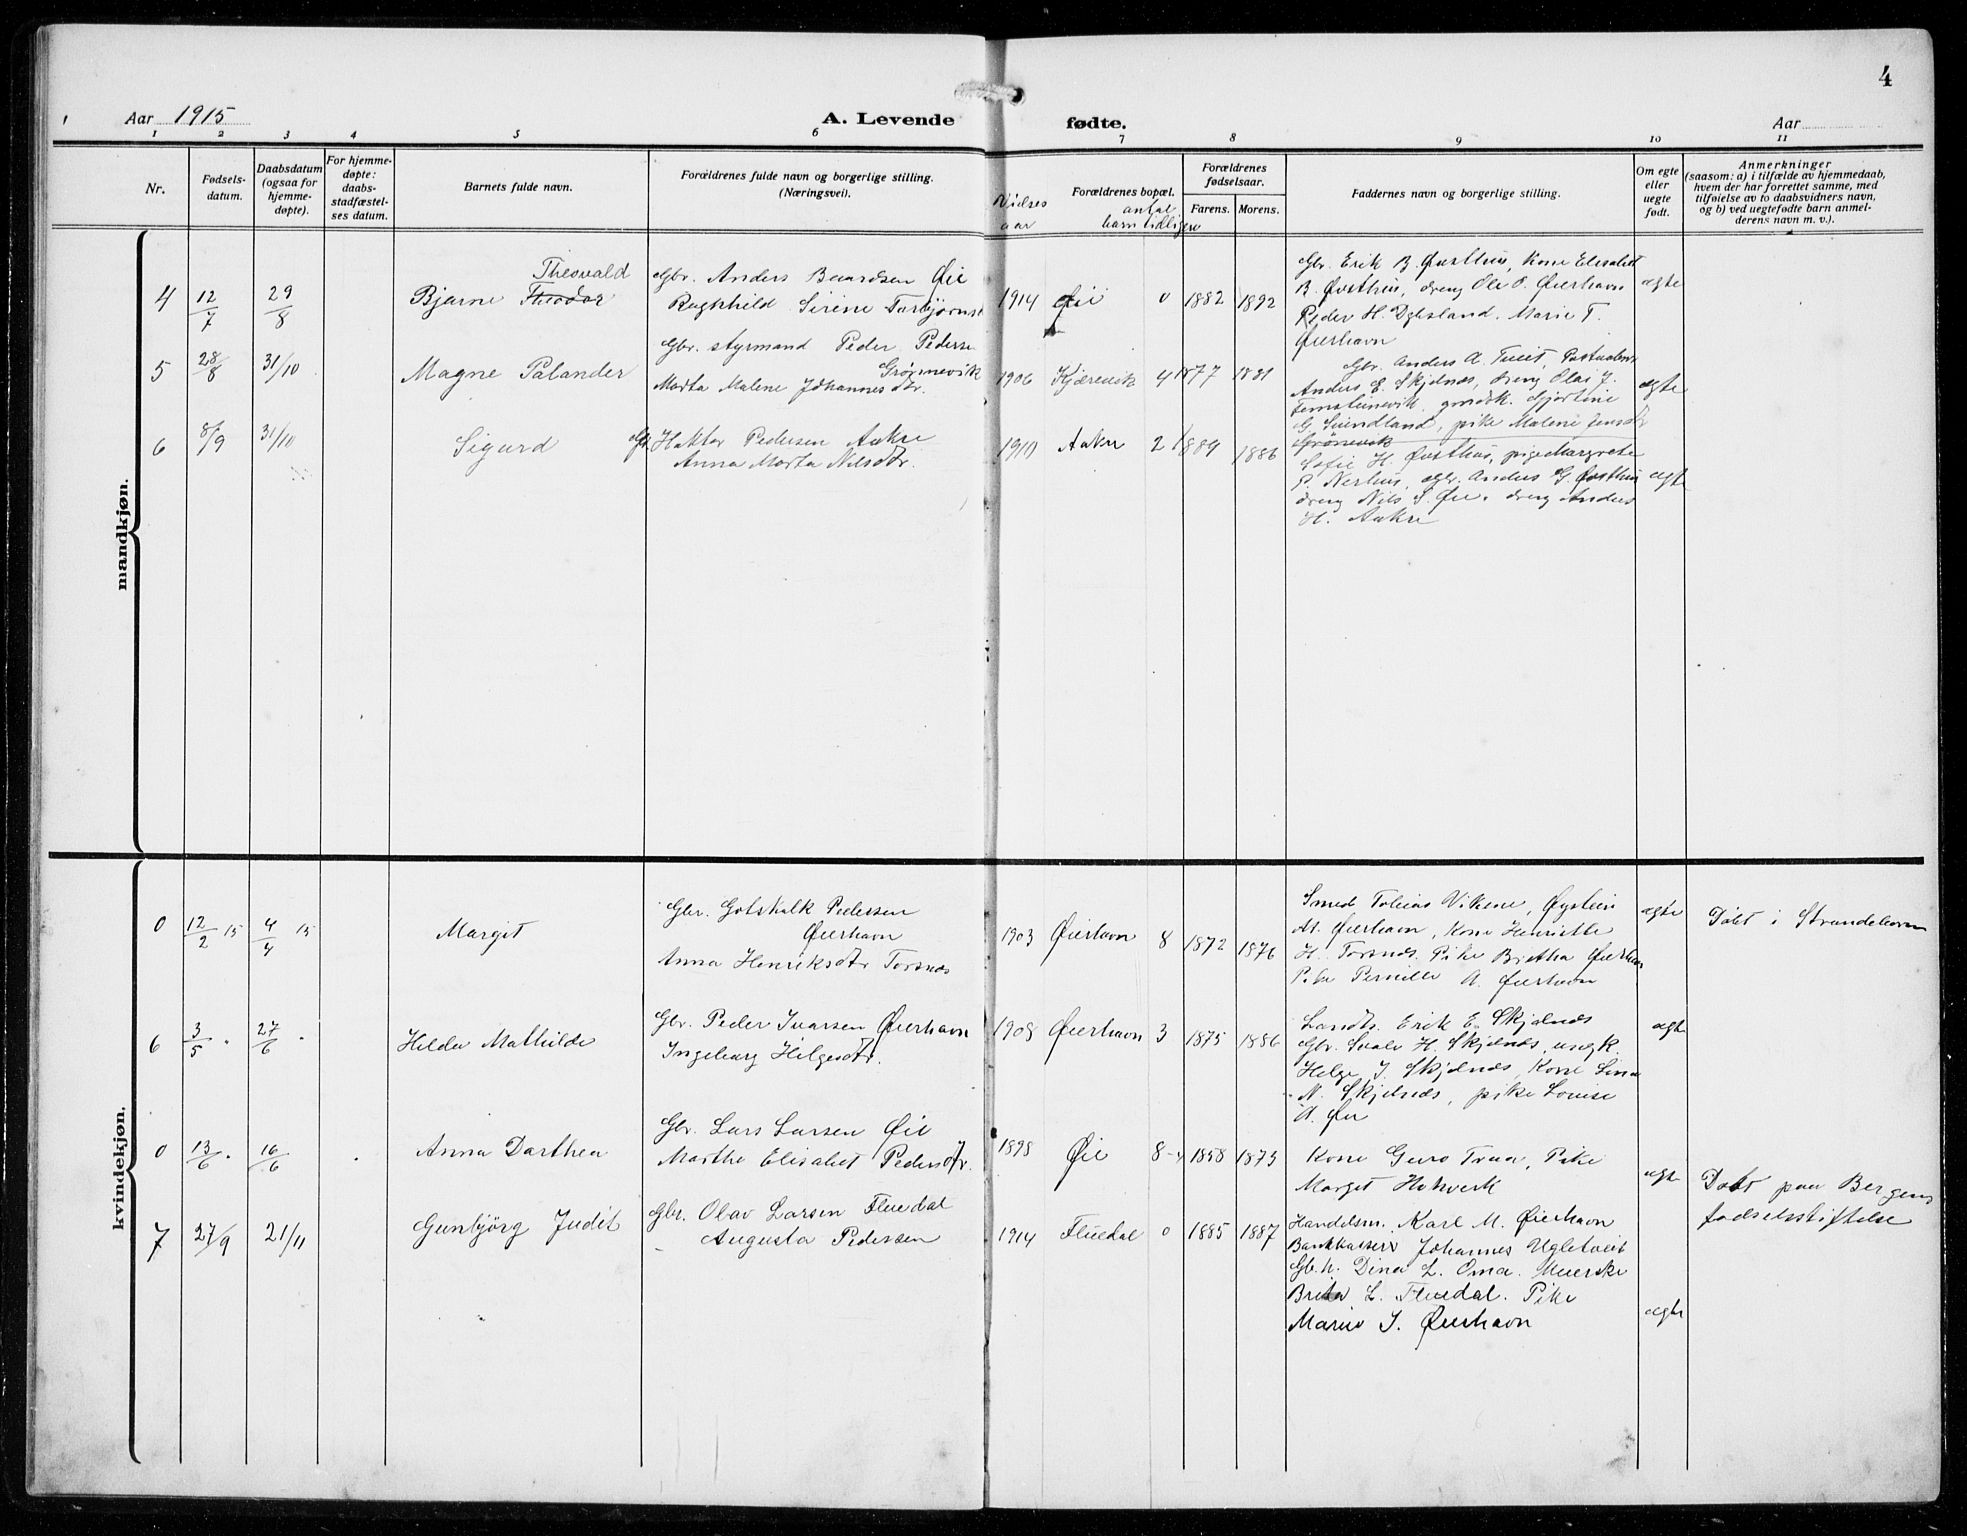 4
Aar 1915
A. Levende fødte.
Aar
1 2 3 4 5 6 7 8 9 10 11
Nr.
Fødsels-
datum.
Daabsdatum
(ogsaa for
hjemme-
døpte).
For hjemme-
døpte:
daabs-
stadfæstel-
ses datum.
Barnets fulde navn.
Forældrenes fulde navn og borgerlige stilling.
(Næringsvei).
Vielses
aar
Forældrenes bopæl.
antal
barn tidligere
Forældrenes
fødselsaar.
Farens. Morens.
Faddernes navn og borgerlige stilling.
Om egte
eller
uegte
født.
Anmerkninger
(saasom: a) i tilfælde av hjemmedaab,
hvem der har forrettet samme, med
tilføielse av to daabsvidners navn,
og b) ved uegtefødte barn anmel-
derens navn m. v.).
mandkjøn.
4 12/7 29/8
Theovald
Bjarne Theodor
Gbr. Anders Baardsen Øie
Ragnhild Sirene Torbjørnsd
1914 Øie 0 1882 1892
Gbr. Erik B. Østhus, Kone Elisabet
B. Østhus, dreng Ole O. Øierhavn
Peder H. Marie T.
Øierhavn
egte
5 28/8 31/10
Magne Palander
Gbr. styrmand Peder Pederse
Grønnevik
Marta Malene Johannesdtr.
1906 Kjærevik 4 1877 1881
Gbr. Anders A. Tveit,
Anders E. Skjelnæs, dreng Olai J.
G. pike Malene Jensdtr
Grønevik
egte
6 8/9 31/10
Sigurd
Gb. Haktor Pedersen Aakre
Anna Marta Nilsdtr.
1910 Aakre 2 1889 1886
Sofie H. Østhus, pige Margrete
P. Nerhus, gbr. Anders G. Østhus
dreng Nils S. Øie, dreng Anders
H. Aakre
egte
kvindekjøn.
0 12/2 15 4/4 15
Margit
Gbr. Gotskalk Pedersen
Øierhavn
Anna Henriksdtr Torsnæs
1903 Øierhavn 8 1872 1876
Smed Tobias Vikene, Øystein
M. Øierhavn, Kone Henriette
H. Torsnæs, Pike Britha Øierhavn
Pike Pernille A. Øierhavn
egte
Døbt i Strandebarm
6 3/5 " 27/6 "
Hilda Mathilde
Gbr. Peder Ivarsen Øierhavn
Ingeborg Helgesdtr.
1908 Øierhavn 3 1875 1886
Landh. Erik E. Skjelnæs
Gbr. H. Skjelnæs, ungk.
Helge J. Skjelnæs, Kone Lina
N. Skjelnæs, pike Lovise
A. Øie
egte
0 13/6 " 16/6
Anna Darthea
Gbr. Lars Larsen Øie
Martha Elisabet Pedersdtr.
1898 Øie 8 1858 1873
Kone Guro Pike
Marget Hakverk
egte
Døbt paa Bergens
fødselsstiftelse
7 27/9 21/11
Gunbjörg Judit
Gbr. Olav Larsen Fluedal
Augusta Pedersen
1914 Fluedal 0 1885 1887
Handelsm. Karl M. Øierhavn
Bankkasserer Johannes Ugletveit
Gb.h. Dina L. Oma. Meierske
Brita L. Fluedal. Pike
Marie J. Øierhavn
egte